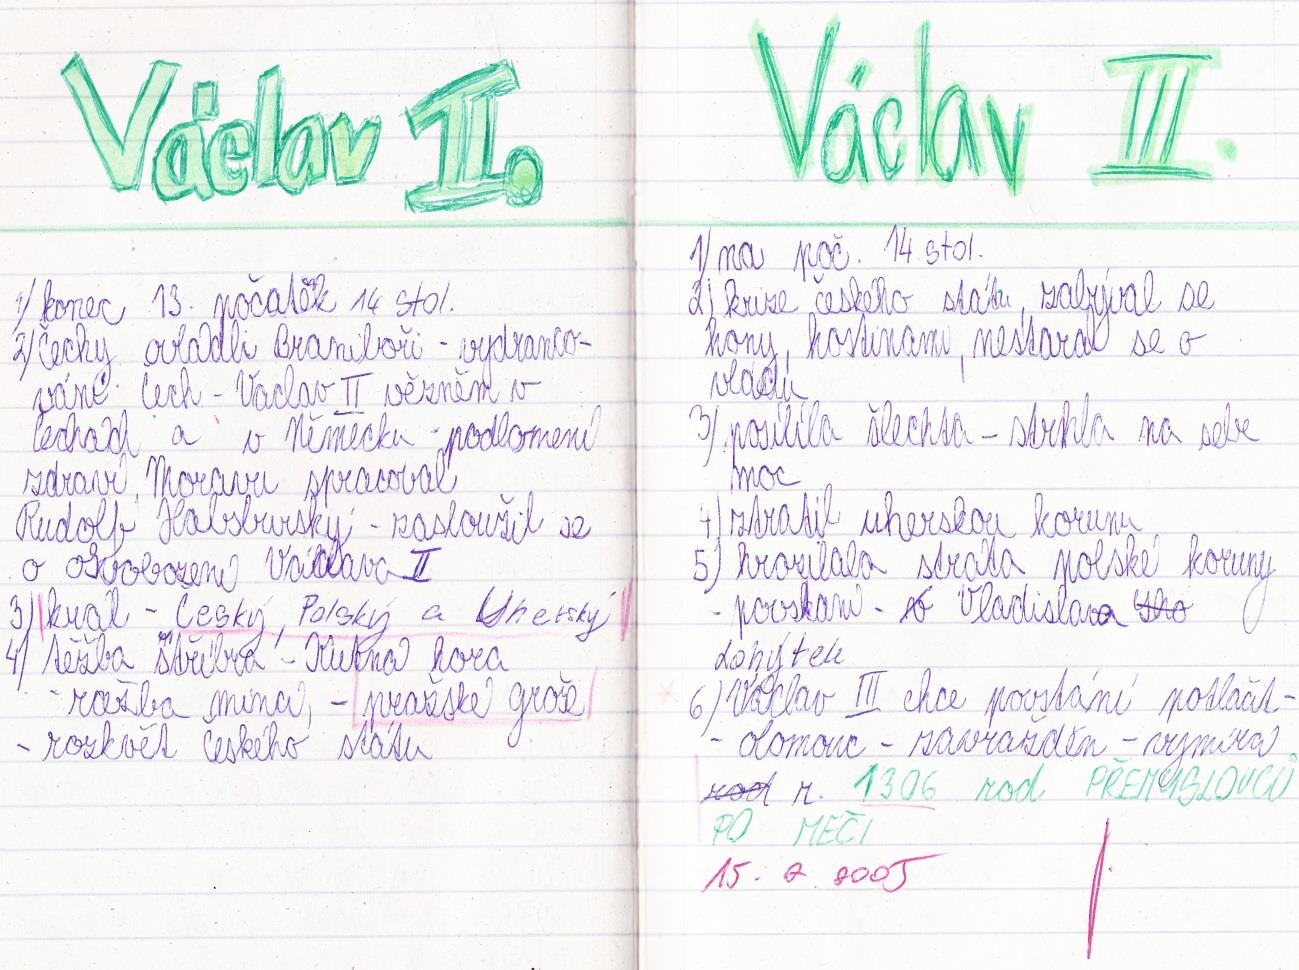 Václav II.
1) konec 13. počátek 14 stol.
2) Čechy ovládli Braniboři - vydranco-
váné Čech - Václav II vězněm v
Čechách a v Německu - podlomení
zdraví, Moravu spracoval
Rudolf Habsburský - zasloužil se
o osvobození Václava II
3) král - Český, Polský a Uherský
4) těžba stříbra - Kutná hora
- ražba mincí, - pražské groše
- rozkvět českého státu
Václav III.
1) na poč. 14 stol.
2) krize českého státu, zabýval se
hony, hostinami, nestaral se o
vládu
3) posílila šlechta - strhla na sebe
moc
4) ztratil uherskou korunu
5) hrozilala strata polské koruny
- povstání - Vladislava
Lokýtek
6) Václav III chce povstání potlačit -
- olomouc - zavražděn - vymírá
rod r. 1306 rod PŘEMYSLOVCŮ
PO MEČI
15. 2. 2005